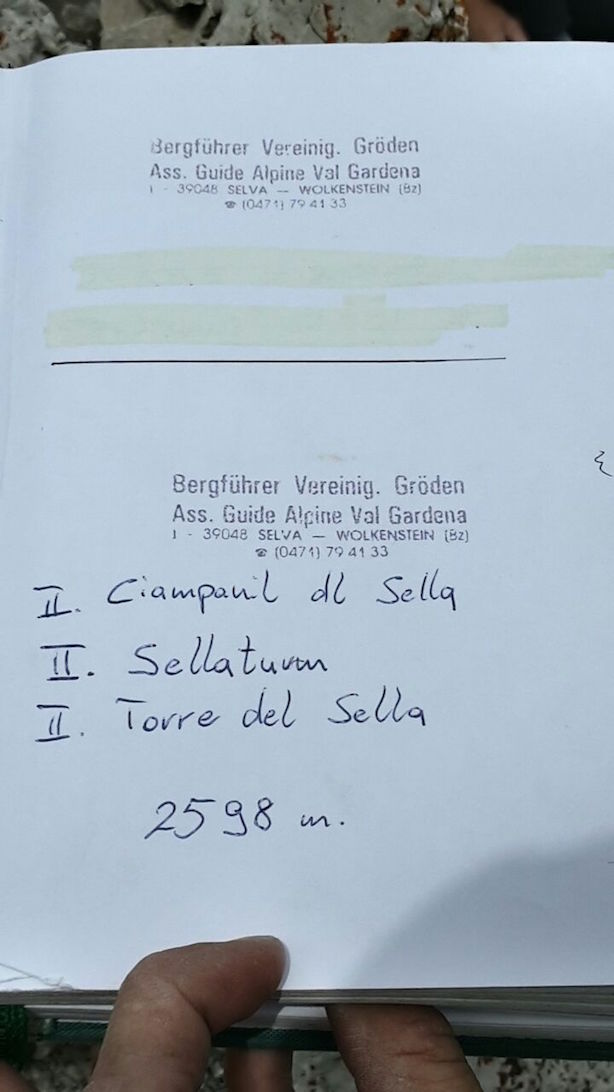 Bergführer Vereinig. Gröden
Ass. Guide Alpine Val Gardena
I - 39048 SELVA — WOLKENSTEIN (Bz)
☎ (0471) 79 41 33
Bergführer Vereinig. Gröden
Ass. Guide Alpine Val Gardena
I - 39048 SELVA — WOLKENSTEIN (Bz)
☎ (0471) 79 41 33
II. Ciampanil dl Sella
II. Sellaturm
II. Torre del Sella
2598 m.